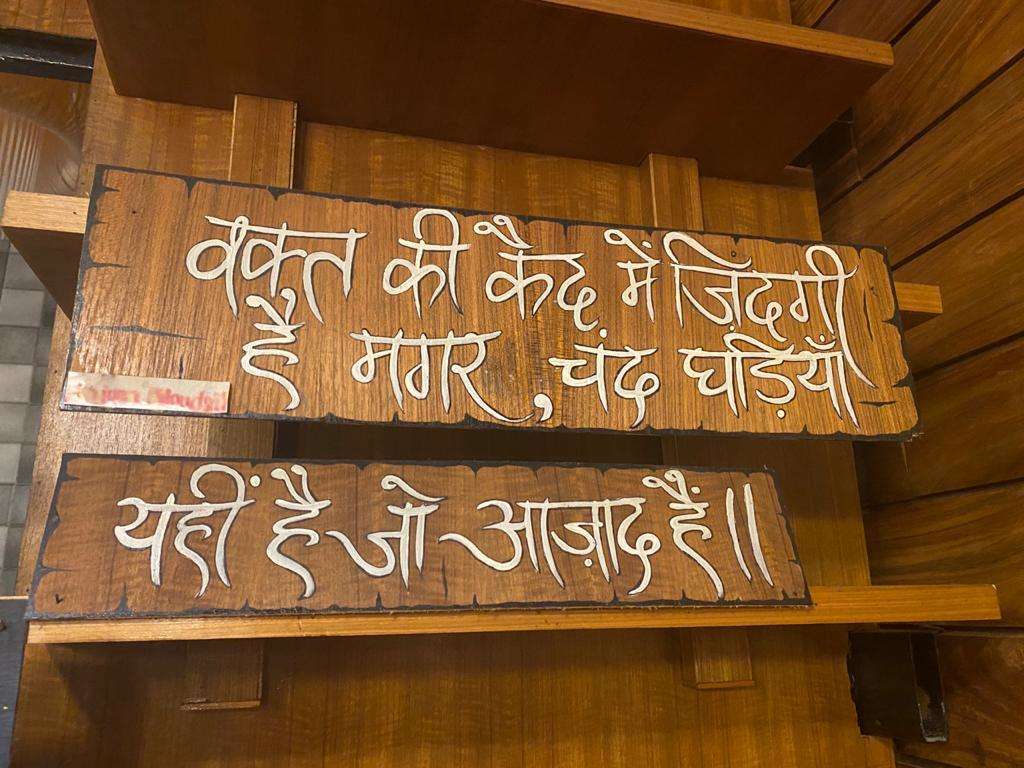 वक़्त की कैद में ज़िंदगी
है मगर, चंद घड़ियाँ
यहीं हैं जो आज़ाद हैं॥